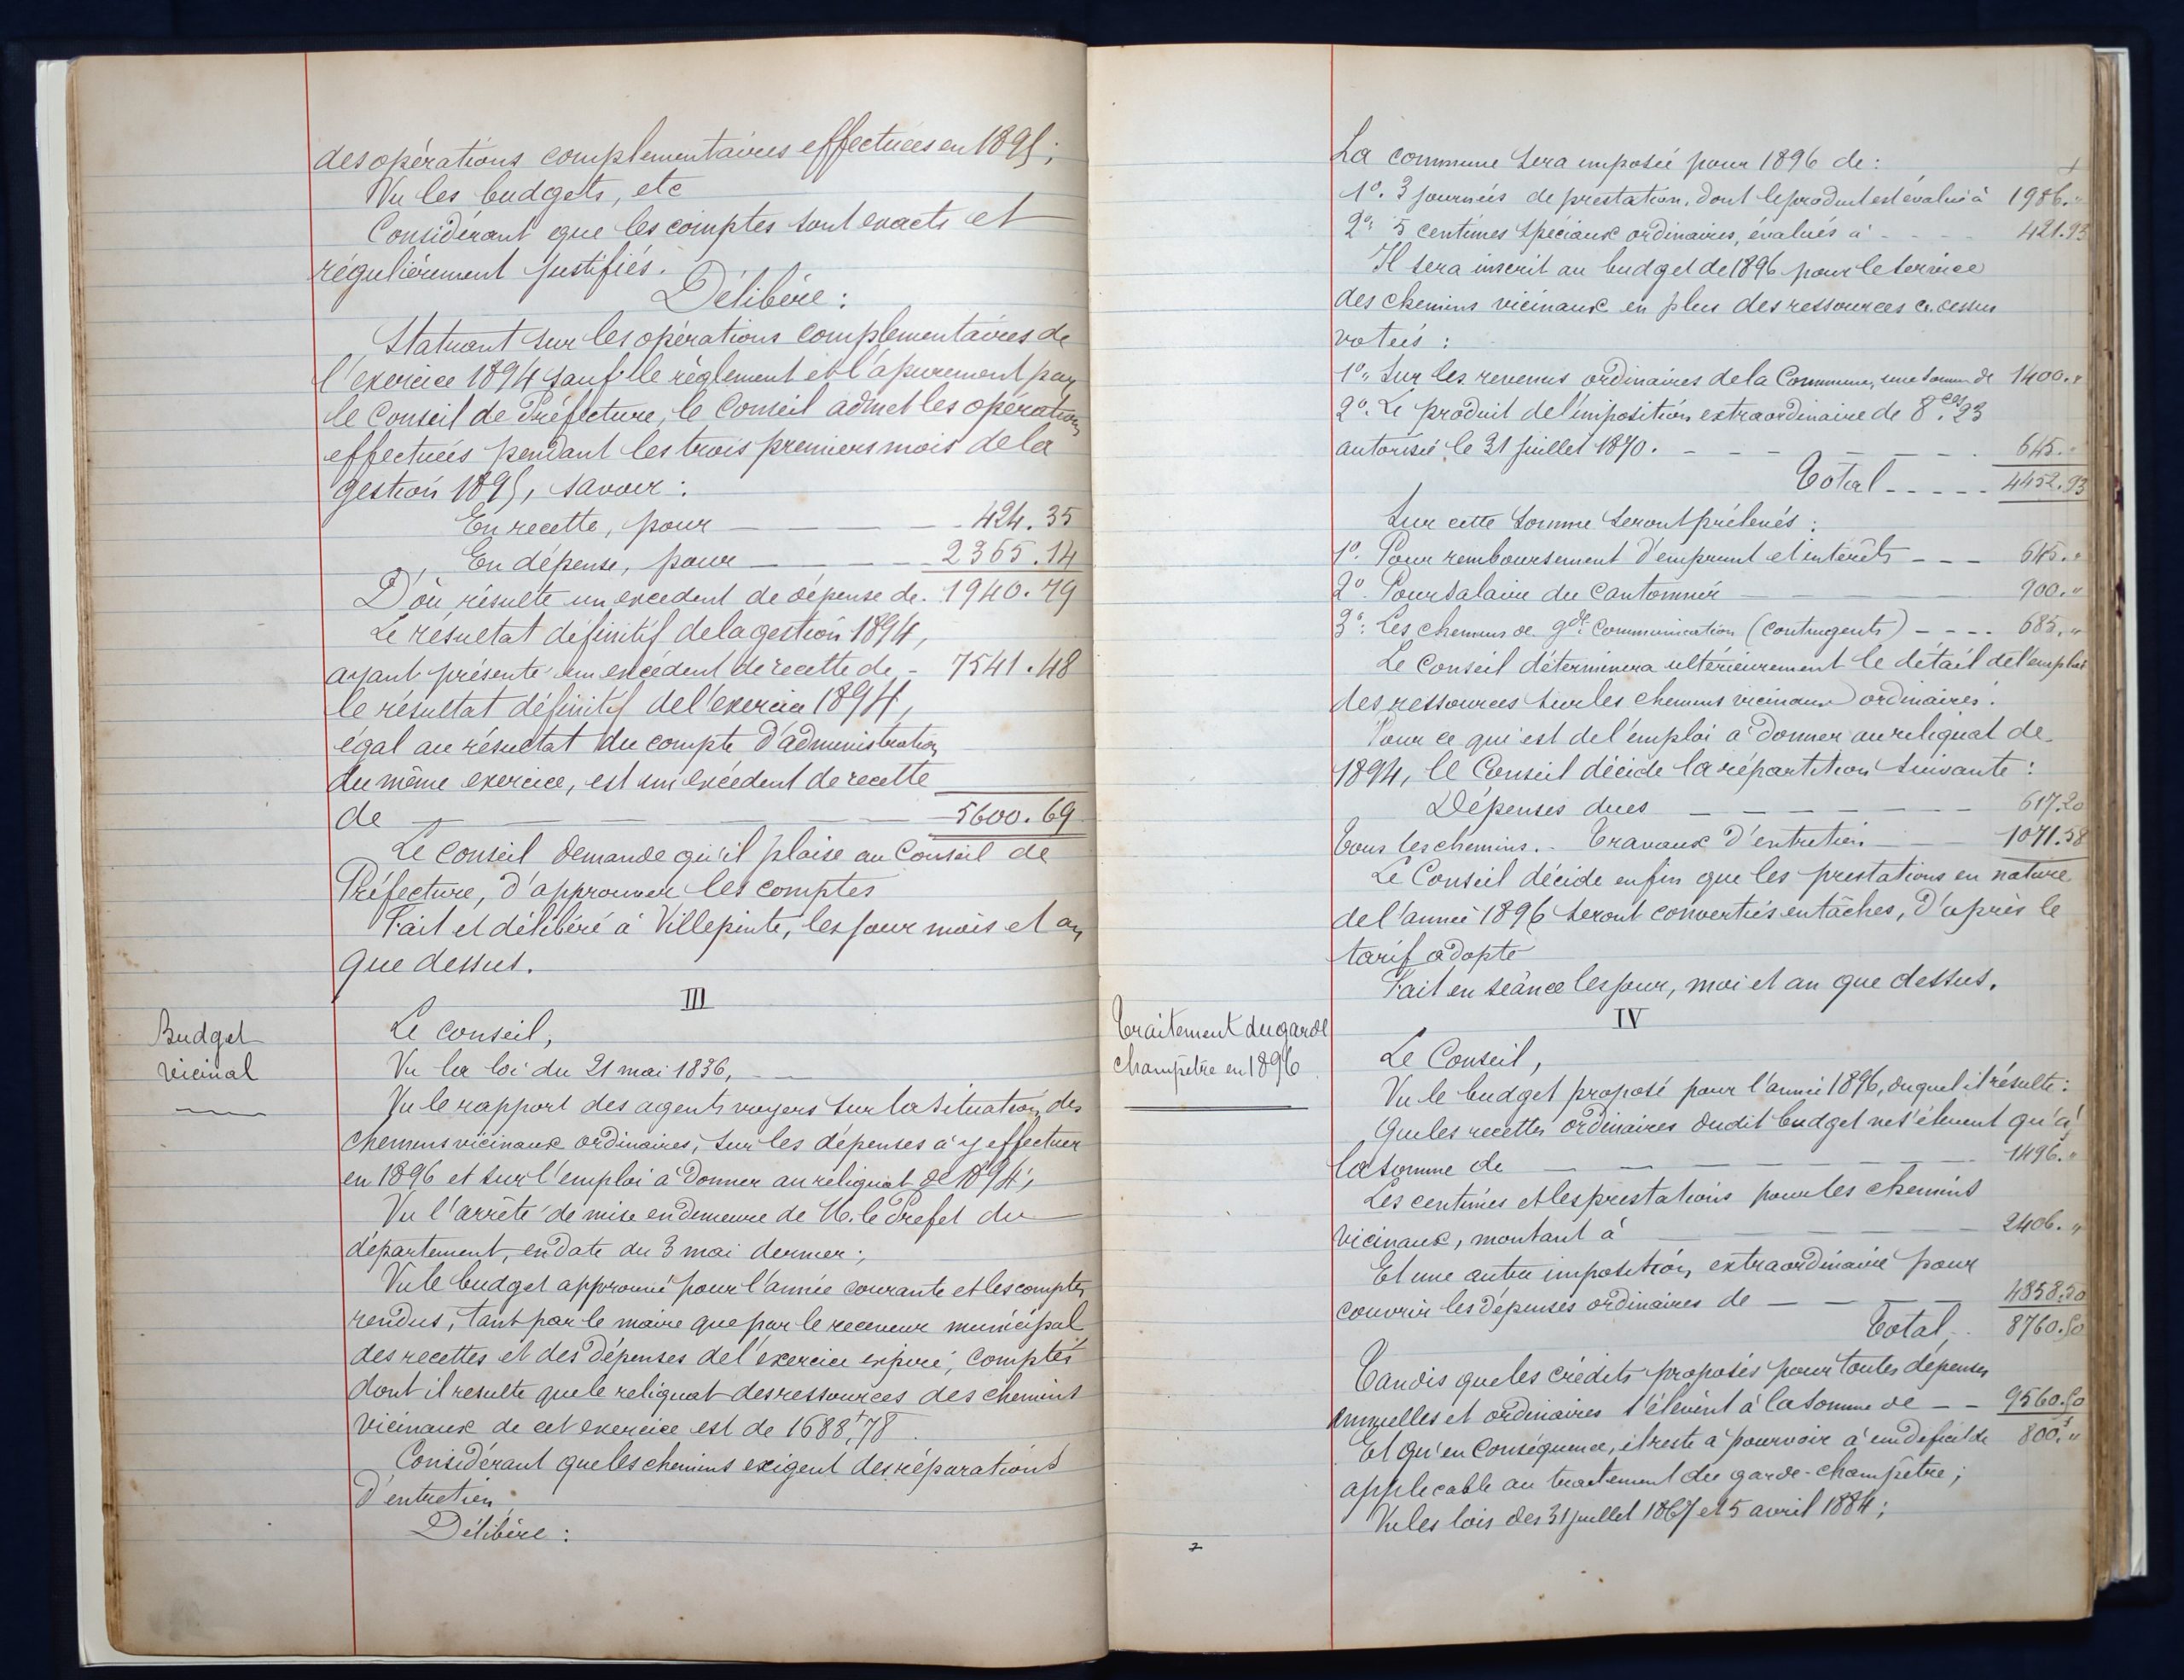 des opérations complementaires effectuées en 1895;
Vu les budgets, etc
Considérant que les comptes sont exacts et
régulièrement justifiés.
Délibère:
Statuant sur les opérations complementaires de
l'exercice 1894 sauf le règlement et l'apurement par
le Conseil de Préfecture, le Conseil admet les opérations
effectuées pendant les trois premiers mois de la
gestion 1895, savoir:
En recette, pour — 424.35
En dépense, pour — 2365.14
D'où résulte un excedent de dépense de. 1940.79
Le résultat définitif de la gestion 1894,
ayant présenté un excédent de recette de - 7541.48
le résultat définitif de l'exercice 1894,
égal au résultat du compte d'administration
du même exercice, est un excédent de recette
de — 5600.69
Le conseil demande qu'il plaise au Conseil de
Préfecture, d'approuver les comptes
Fait et délibéré à Villepinte, les jour mois et an
que dessus.
III
Budget
vicinal
Le conseil,
Vu la loi du 21 mai 1836,
Vu le rapport des agents voyers sur la situation des
chemins vicinaux ordinaires, sur les dépenses à y effectuer
en 1896 et sur l'emploi à donner au reliquat de 1894;
Vu l'arrêté de mise en demeure de M. le Préfet du
département, en date du 3 mai dernier;
Vu le budget approuvé pour l'année courante et les comptes
rendus, tant par le maire que par le receveur municipal
des recettes et des dépenses de l'exercice expiré, comptes
dont il resulte que le reliquat des ressources des chemins
vicinaux de cet exercice est de 1688f,78.
Considérant que les chemins exigent des réparations
d'entretien
Délibère:
La commune sera imposée pour 1896 de: f
1º. 3 journées de prestation, dont le produit est évalué à 1986."
2º. 5 centimes spéciaux ordinaires, évalués à - - - 421.93
Il sera inscrit au budget de 1896 pour le service
des chemins vicinaux en plus des ressources ci-dessus
votées:
1º. Sur les revenus ordinaires de la Commune, une somme de 1400."
2º. Le produit de l'imposition extraordinaire de 8ces.23
autorisée le 31 juillet 1870. - - - 645."
Total - - - - - 4452.93
Sur cette somme seront prélevés:
1º. Pour remboursement d'emprunt et intérêts - - - 645."
2º. Pour salaire du cantonnier — 900."
3º. Les chemins de gde. Communication (contingents) - - - - 685."
Le Conseil déterminera ultérieurement le détail de l'emploi
des ressources sur les chemins vicinaux ordinaires.
Pour ce qui est de l'emploi à donner au reliquat de
1894, le Conseil décide la répartition suivante:
Dépenses dues — 617.20
Tous les chemins. - Travaux d'entretien — 1071.58
Le Conseil décide enfin que les prestations en nature
de l'année 1896 seront converties en tâches, d'après le
tarif adopté
Fait en séance les jour, moi et an que dessus.
IV
Traitement du garde
champêtre en 1896
Le Conseil,
Vu le budget proposé pour l'année 1896, duquel il résulte:
Que les recettes ordinaires dudit budget ne s'élèvent qu'à
la somme de — 1496."
Les centimes et les prestations pour les chemins
vicinaux, montant à — 2406."
Et une autre imposition extraordinaire pour
couvrir les dépenses ordinaires de — 4858.50
Total - 8760.50
Tandis que les crédits proposés pour toutes dépenses
annuelles et ordinaires s'élèvent à la somme de - - 9560.50
Et qu'en conséquence, il reste à pourvoir à un deficit de 800f."
applicable au traitement du garde-champêtre;
Vu les lois des 31 juillet 1867 et 5 avril 1884;